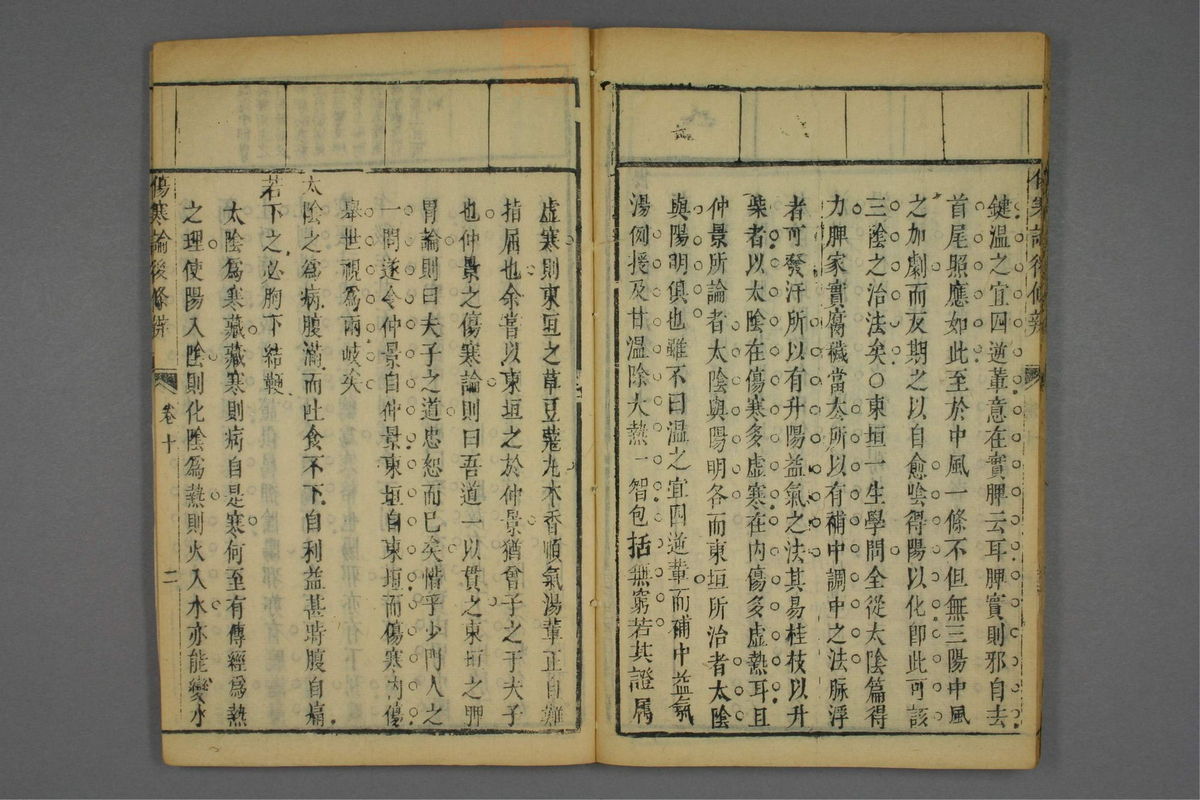 鍵温之宜四逆軰意在實脾云耳脾實則邪自去
首尾照應如此至於中風一條不但無三陽中風
之加劇而反期之以自愈陰得陽以化卽此可該
三陰之治法矣○東垣一生學問全從太陰篇得
力脾家實腐穢當去所以有補中調中之法脉浮
者可發汗所以有升陽益氣之法其易桂枝以升
柴者以太陰在傷寒多虚寒在内傷多虚熱耳且
仲景所論者太陰與陽明各而東垣所治者太陰
與陽明俱也雖不曰温之宜四逆軰而補中益氣
湯例授及甘温除大熱一智包括無窮若其證属
虚寒則東垣之草豆蔻丸木香順氣湯軰正自難
指屈也余嘗以東垣之於仲景猶曾子之于夫子
也仲景之傷寒論則曰吾道一以貫之東垣之脾
胃論則曰夫子之道忠恕而已矣惜乎少門人之
一問遂令仲景自仲景東垣自東垣而傷寒内傷
舉世視爲兩岐矣
太陰之爲病腹滿而吐食不下自利益甚時腹自痛
若下之必胸下結鞕
太陰爲寒藏藏寒則病自是寒何至有傳經爲熱
之理使陽入陰則化陰爲熱則火入水亦能變水
傷寒論後條辨 卷十 二